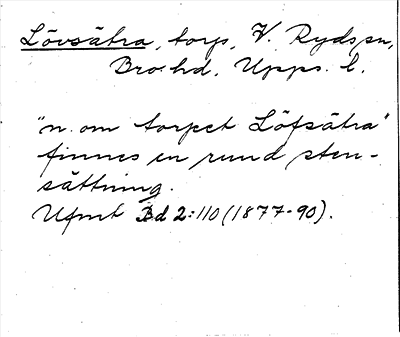 Lövsätra, torp, V. Ryds sn,
Bro hd, Upps. l.
"n. om torpet Löfsätra"
finnes en rund sten-
sättning.
Ufmt Bd 2:110 (1877-90).